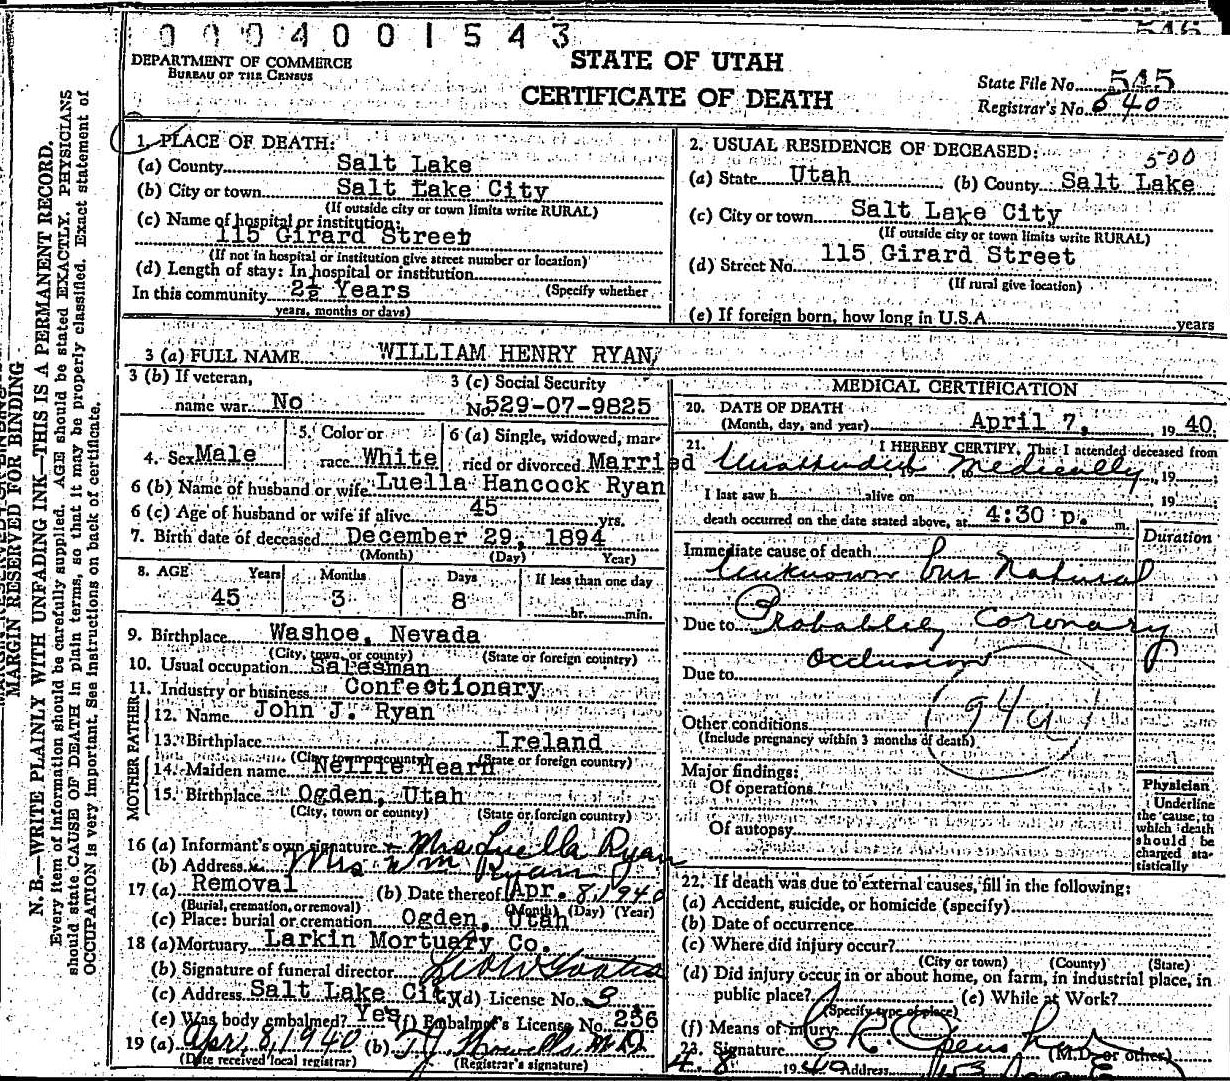 0004001543
STATE OF UTAH
CERTIFICATE OF DEATH
DEPARTMENT OF COMMERCE
BUREAU OF THE CENSUS
State File No. 545
Registrar's No. 640
N. B.—WRITE PLAINLY WITH UNFADING INK—THIS IS A PERMANENT RECORD.
MARGIN RESERVED FOR BINDING
Every item of information should be carefully supplied. AGE should be stated EXACTLY. PHYSICIANS
should state CAUSE OF DEATH in plain terms, so that it may be properly classified. Exact statement of
OCCUPATION is very important. See instructions on back of certificate.
1. PLACE OF DEATH:
(a) County Salt Lake
(b) City or town Salt Lake City
(If outside city or town limits write RURAL)
(c) Name of hospital or institution:
115 Girard Street
(If not in hospital or institution give street number or location)
(d) Length of stay: In hospital or institution
In this community 2½ Years (Specify whether
years, months or days)
2. USUAL RESIDENCE OF DECEASED: 500
(a) State Utah (b) County Salt Lake
(c) City or town Salt Lake City
(If outside city or town limits write RURAL)
(d) Street No. 115 Girard Street
(If rural give location)
(e) If foreign born, how long in U.S.A. years
3 (a) FULL NAME WILLIAM HENRY RYAN
3 (b) If veteran,
name war No
3 (c) Social Security
No. 529-07-9825
4. Sex Male
5. Color or
race White
6 (a) Single, widowed, mar-
ried or divorced Married
6 (b) Name of husband or wife Luella Hancock Ryan
6 (c) Age of husband or wife if alive 45 yrs.
7. Birth date of deceased December 29, 1894
(Month) (Day) Year)
8. AGE Years Months Days If less than one day
45 3 8 hr. min.
9. Birthplace Washoe, Nevada
(City, town, or county) (State or foreign country)
10. Usual occupation Salesman
11. Industry or business Confectionary
FATHER
12. Name John J. Ryan
13. Birthplace Ireland
(City, town or county) (State or foreign country)
MOTHER
14. Maiden name Nellie Hearn
15. Birthplace Ogden, Utah
(City, town or county) (State or foreign country)
16 (a) Informant's own signature Mrs Luella Ryan
(b) Address Mrs Wm Ryan
17 (a) Removal (b) Date thereof Apr. 8, 1940
(Burial, cremation, or removal) (Month) (Day) (Year)
(c) Place: burial or cremation Ogden, Utah
18 (a) Mortuary Larkin Mortuary Co.
(b) Signature of funeral director
(c) Address Salt Lake City (d) License No. 9
(e) Was body embalmed? Yes (f) Embalmer's License No. 256
19 (a) Apr. 8, 1940 (b) T J Howells M D
(Date received local registrar) (Registrar's signature)
MEDICAL CERTIFICATION
20. DATE OF DEATH
(Month, day, and year) April 7, 1940.
21. I HEREBY CERTIFY, That I attended deceased from
Unattended Medically, 19
I last saw h alive on 19
death occurred on the date stated above, at 4:30 p. m.
Duration
Immediate cause of death
Unknown but Natural
Due to Probablily Coronary
Occlusion
Due to
94a
Other conditions
(Include pregnancy within 3 months of death)
Major findings:
Of operations
Of autopsy
Physician
Underline
the cause to
which death
should be
charged sta-
tistically
22. If death was due to external causes, fill in the following:
(a) Accident, suicide, or homicide (specify)
(b) Date of occurrence
(c) Where did injury occur?
(City or town) (County) (State)
(d) Did injury occur in or about home, on farm, in industrial place, in
public place? (e) While at Work?
(Specify type of place)
(f) Means of injury
23. Signature C R Openshaw (M.D. or other)
4. 8 1940 Address